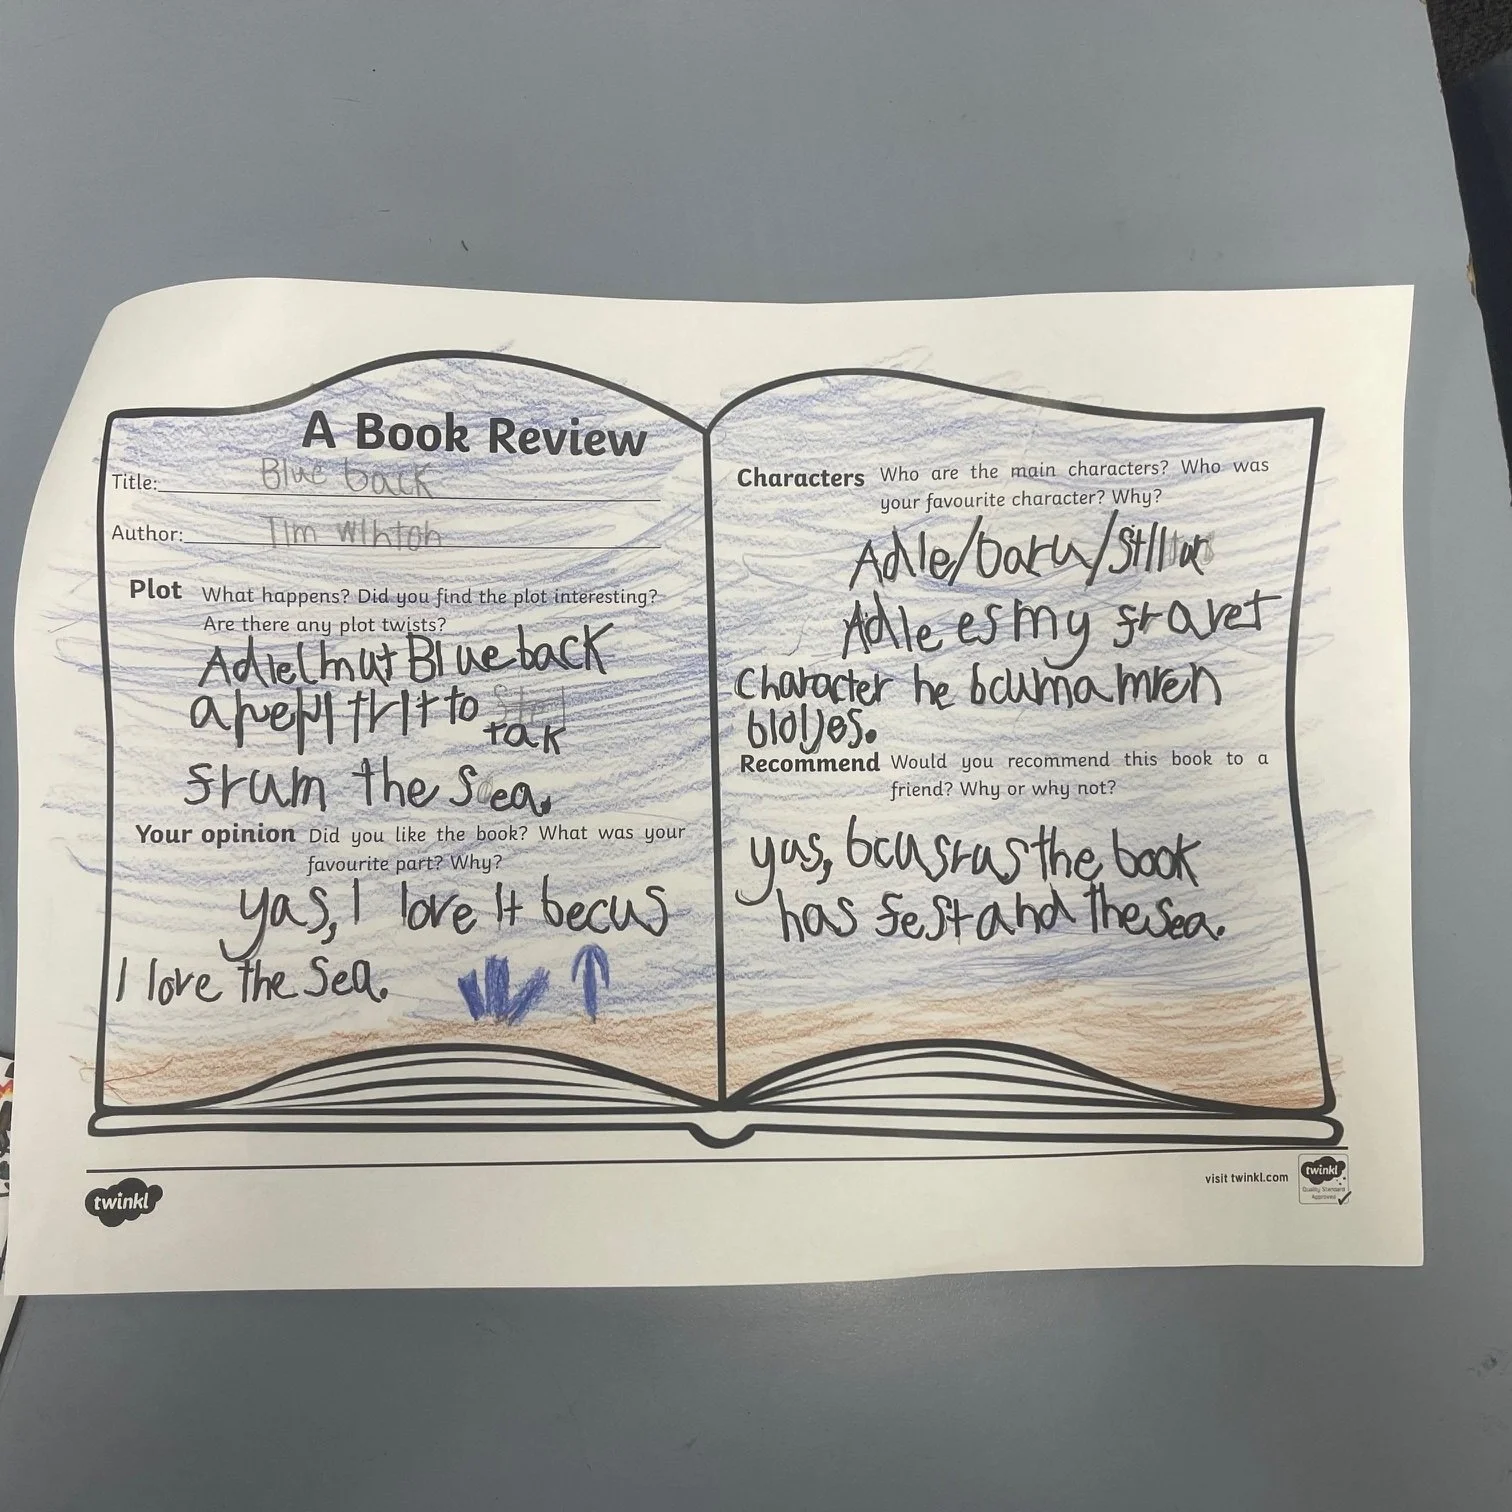 A Book Review
Title: Blue back
Author: Tim winton
Plot What happens? Did you find the plot interesting?
Are there any plot twists?
Adle mut Blue back
a pepl trit to
tak
frum the Sea.
Your opinion Did you like the book? What was your
favourite part? Why?
yas, I love it becus
I love the Sea.
Characters Who are the main characters? Who was
your favourite character? Why?
Adle/baru/
Adle es my fravet
Character he bcuma mren
bioljes.
Recommend Would you recommend this book to a
friend? Why or why not?
yas, bcus the book
has fest and the Sea.
twinkl
visit twinkl.com
twinkl
Quality Standard
Approved